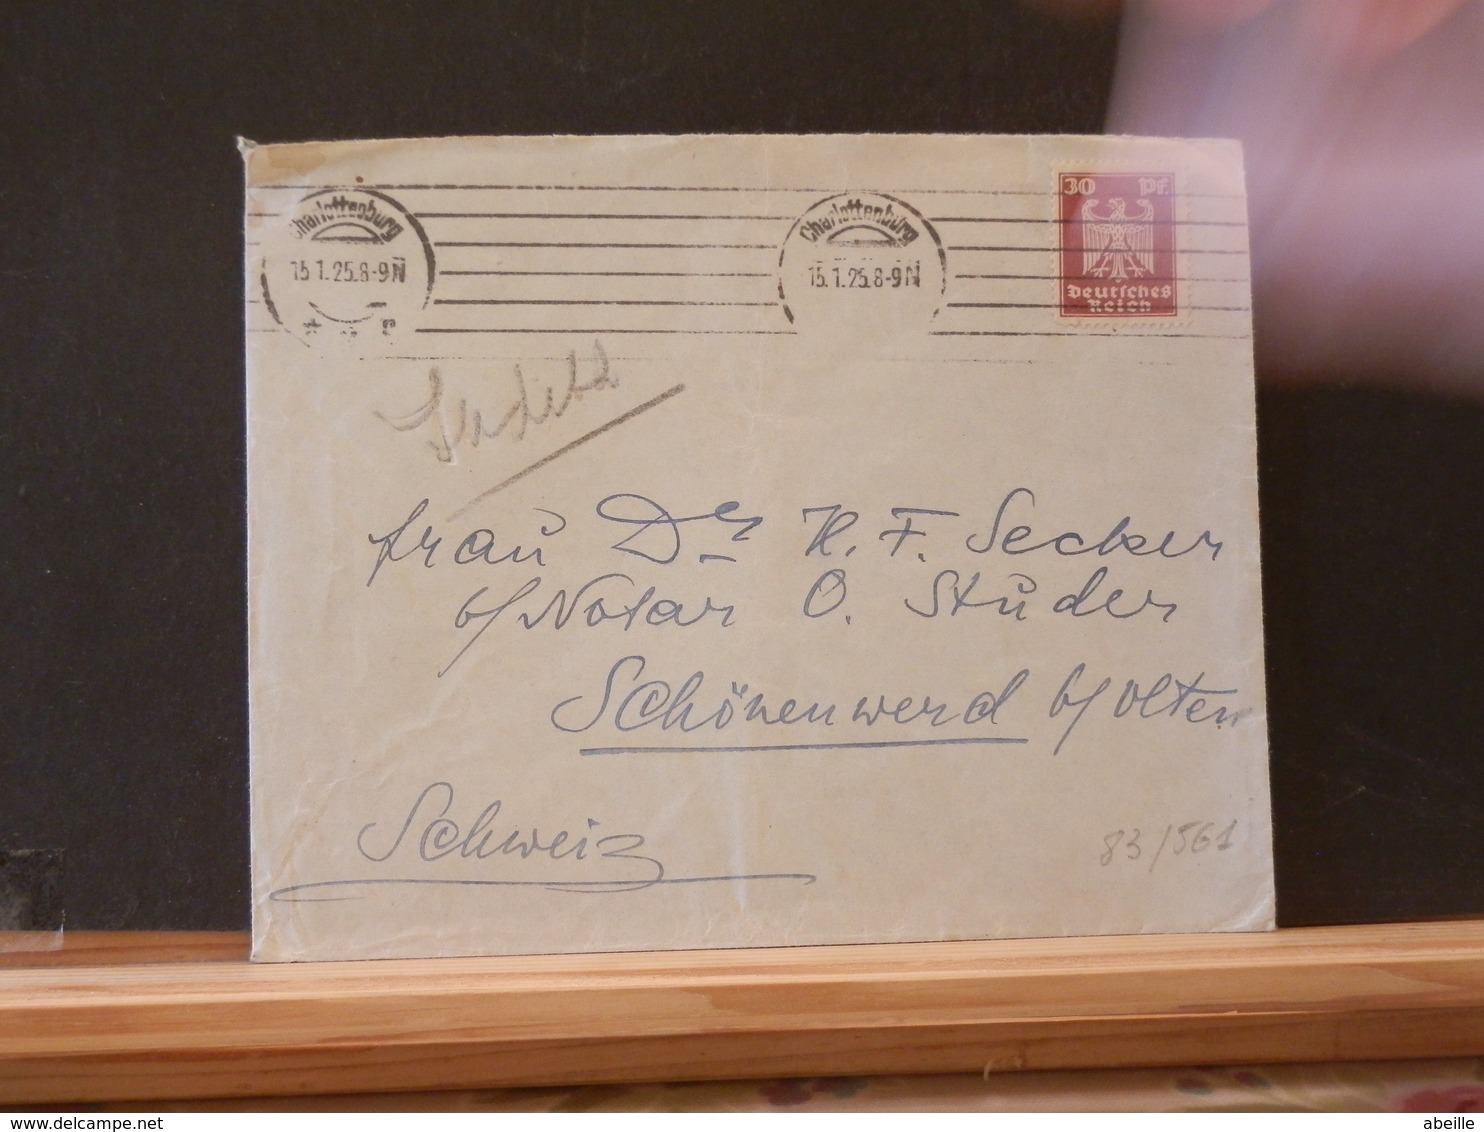 Charlottenburg
15.1.25.8-9N
Charlottenburg
15.1.25.8-9N
30 Pf.
Deutsches
Reich
Frau Dr H. F. Secker
b/Notar O. Studer
Schönenwerd b/Olten
Schweiz
83/561
abeille